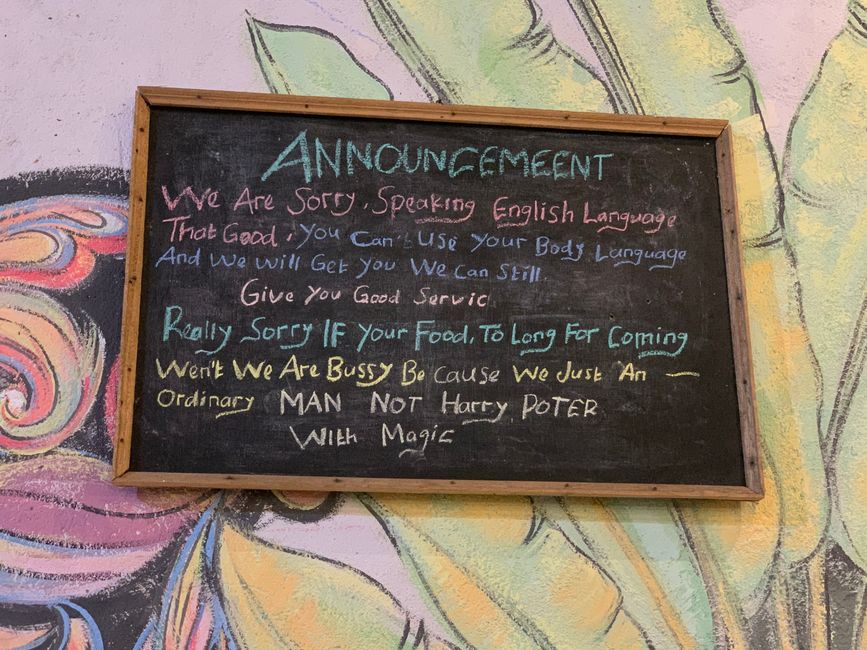 ANNOUNCEMEENT
We Are Sorry, Speaking English Language
That Good, You Can't Use Your Body Language
And We Will Get You We Can Still
Give You Good Servic
Really Sorry IF Your Food, To Long For Coming
Wen't We Are Bussy Be cause We Just An —
Ordinary MAN NOT Harry POTER
With Magic